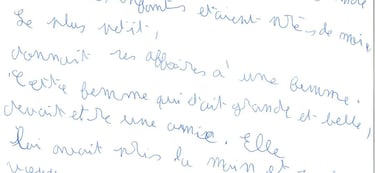 enfants étaient près de moi
Le plus petit,
donnait ses affaires à une femme.
Cette femme qui était grande et belle,
devait etre une amie. Elle
lui avait pris la main et